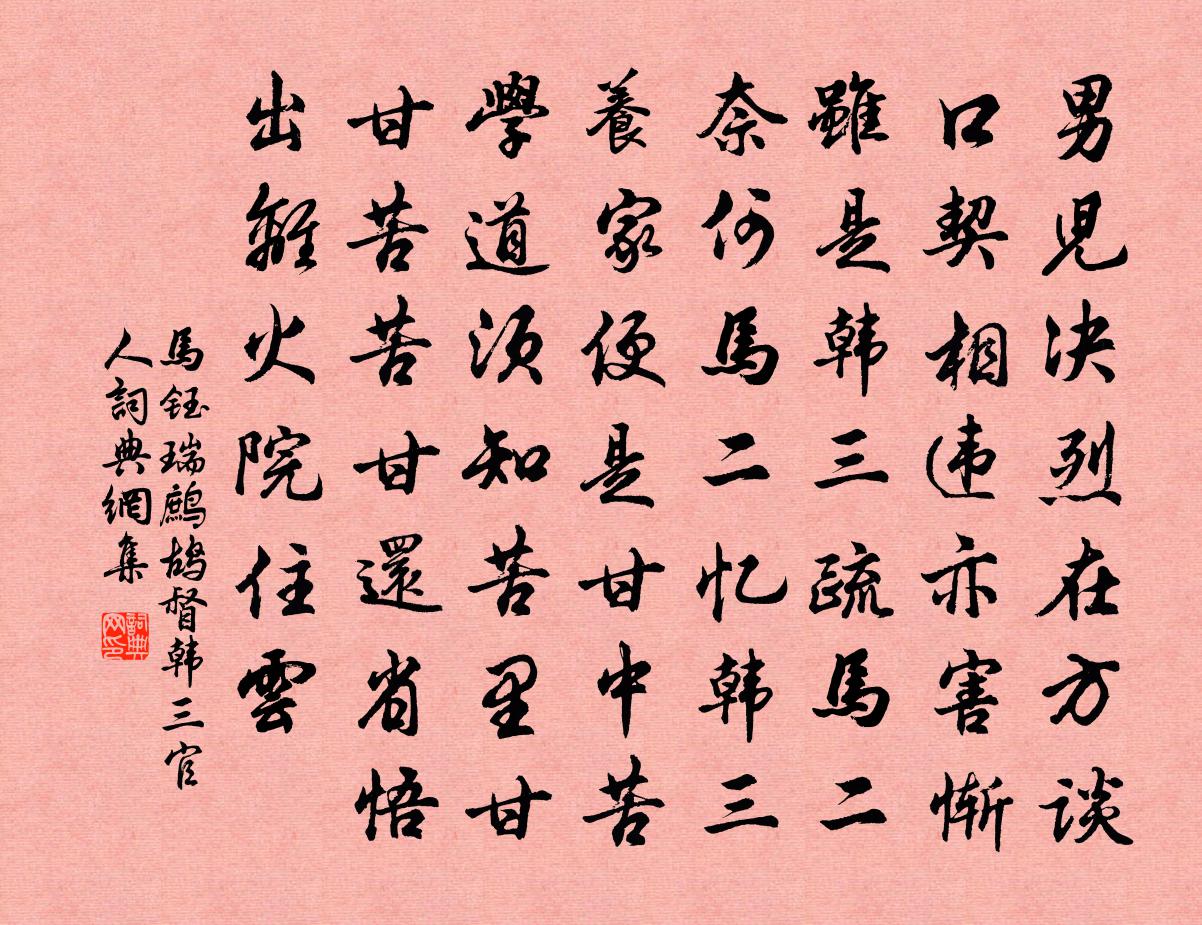 男児决烈在方談
口契相违亦害慚
雖是韩三疏馬二
奈何馬二忆韩三
養家便是甘中苦
學道须知苦里甘
甘苦苦甘還省悟
出離火院住雲
馬鈺瑞鷓鴣督韩三官
人詞典網集
詞典网印